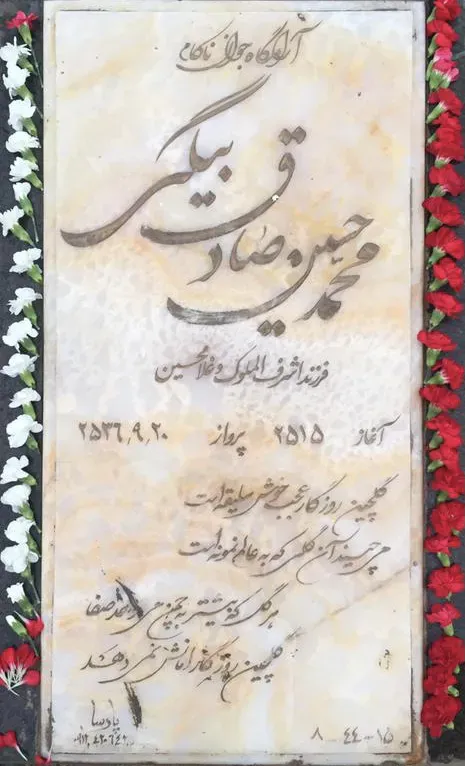 آرامگاه جوان ناکام
محمد حسین صادق بیگی
فرزند اشرف الملوک و غلامحسین
آغاز ۲۵۱۵ پرواز ۲۵۳۶,۹,۲۰
گلچین روزگار عجب خوش سلیقه است
می چیند آن گلی که به عالم نمونه است
هر گل که بیشتر به چمن می دهد صفا
گلچین روزگار امانش نمی دهد
پارسا
۸ - ۴۴ - ۱۵